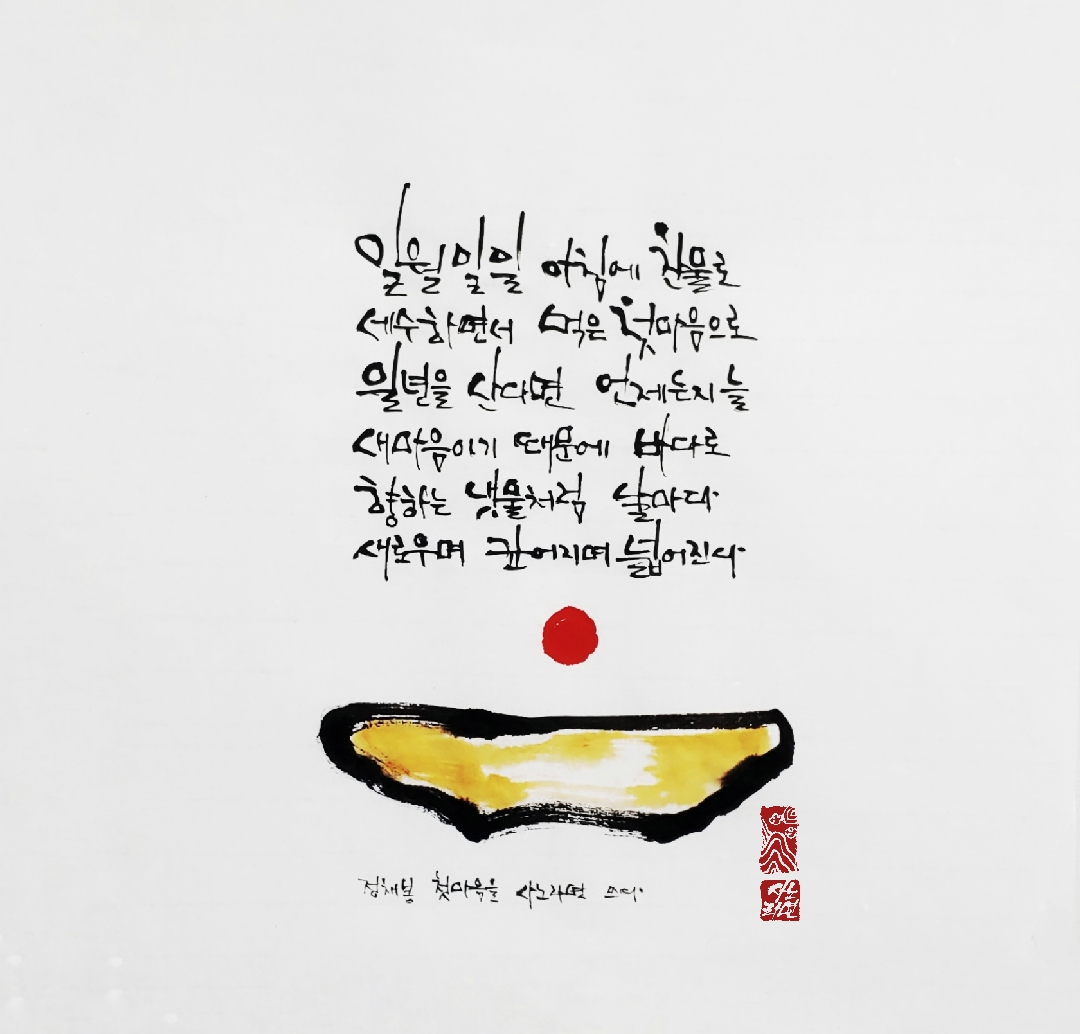 일월일일 아침에 찬물로
세수하면서 먹은 첫마음으로
일년을 산다면 언제든지 늘
새마음이기 때문에 바다로
향하는 냇물처럼 날마다
새로우며 깊어지며 넓어진다
정채봉 첫마음을 사노라면 쓰다
사노
라면